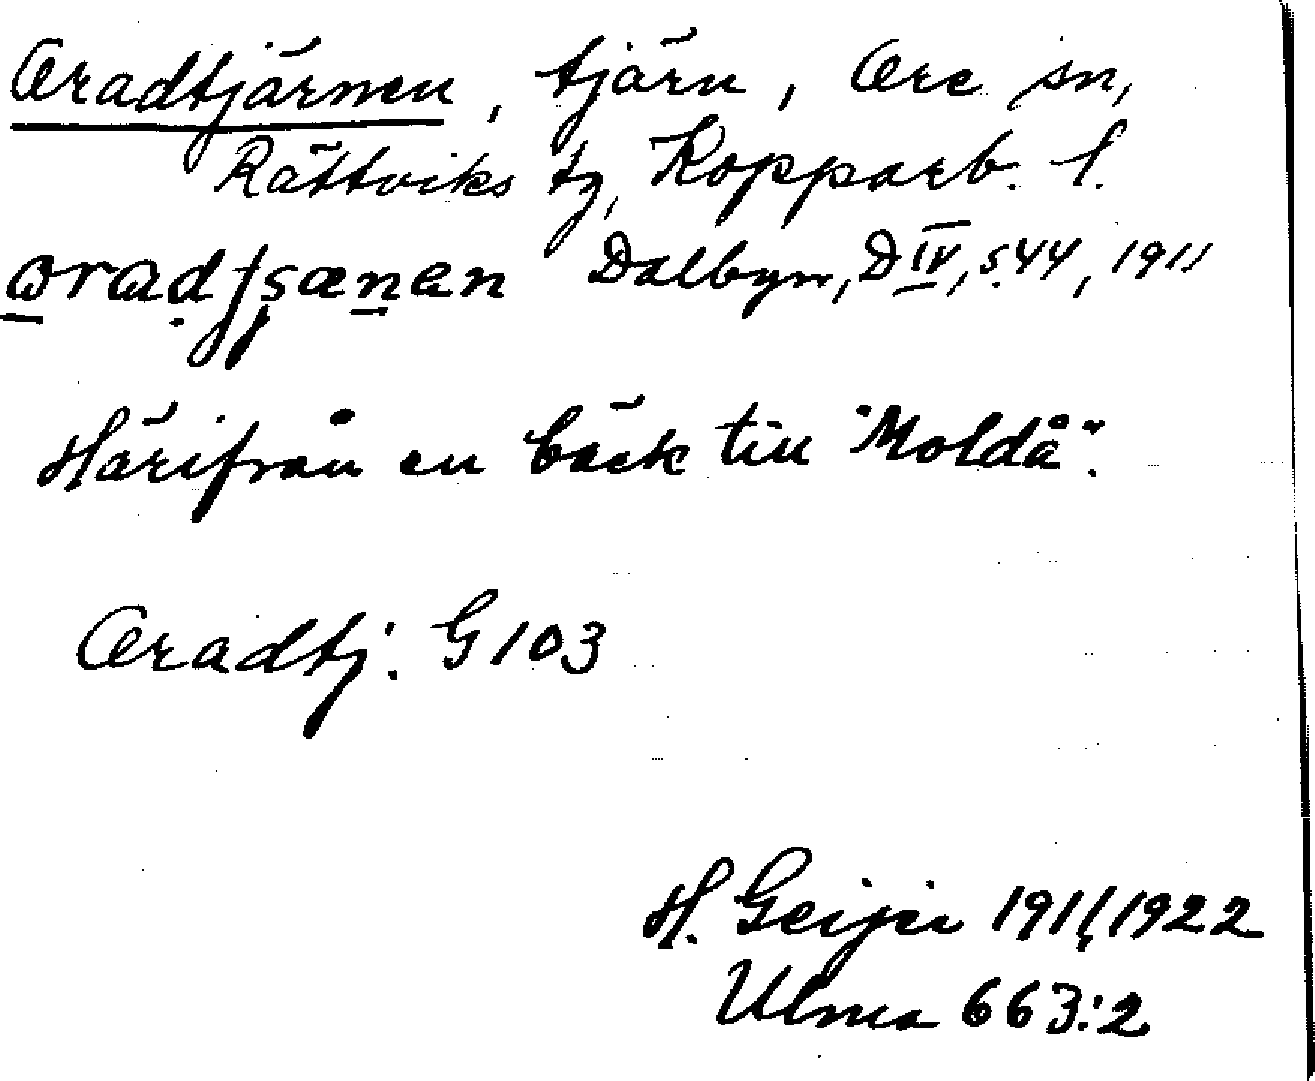 Oradtjärnen, tjärn, Ore sn,
Rättviks tg, Kopparb. l.
Dalbyn, D IV, s. 44, 1911
Härifrån en bäck till "Moldå".
Oradtj. G 103
H. Geijer 1911, 1922
Ulma 663:2